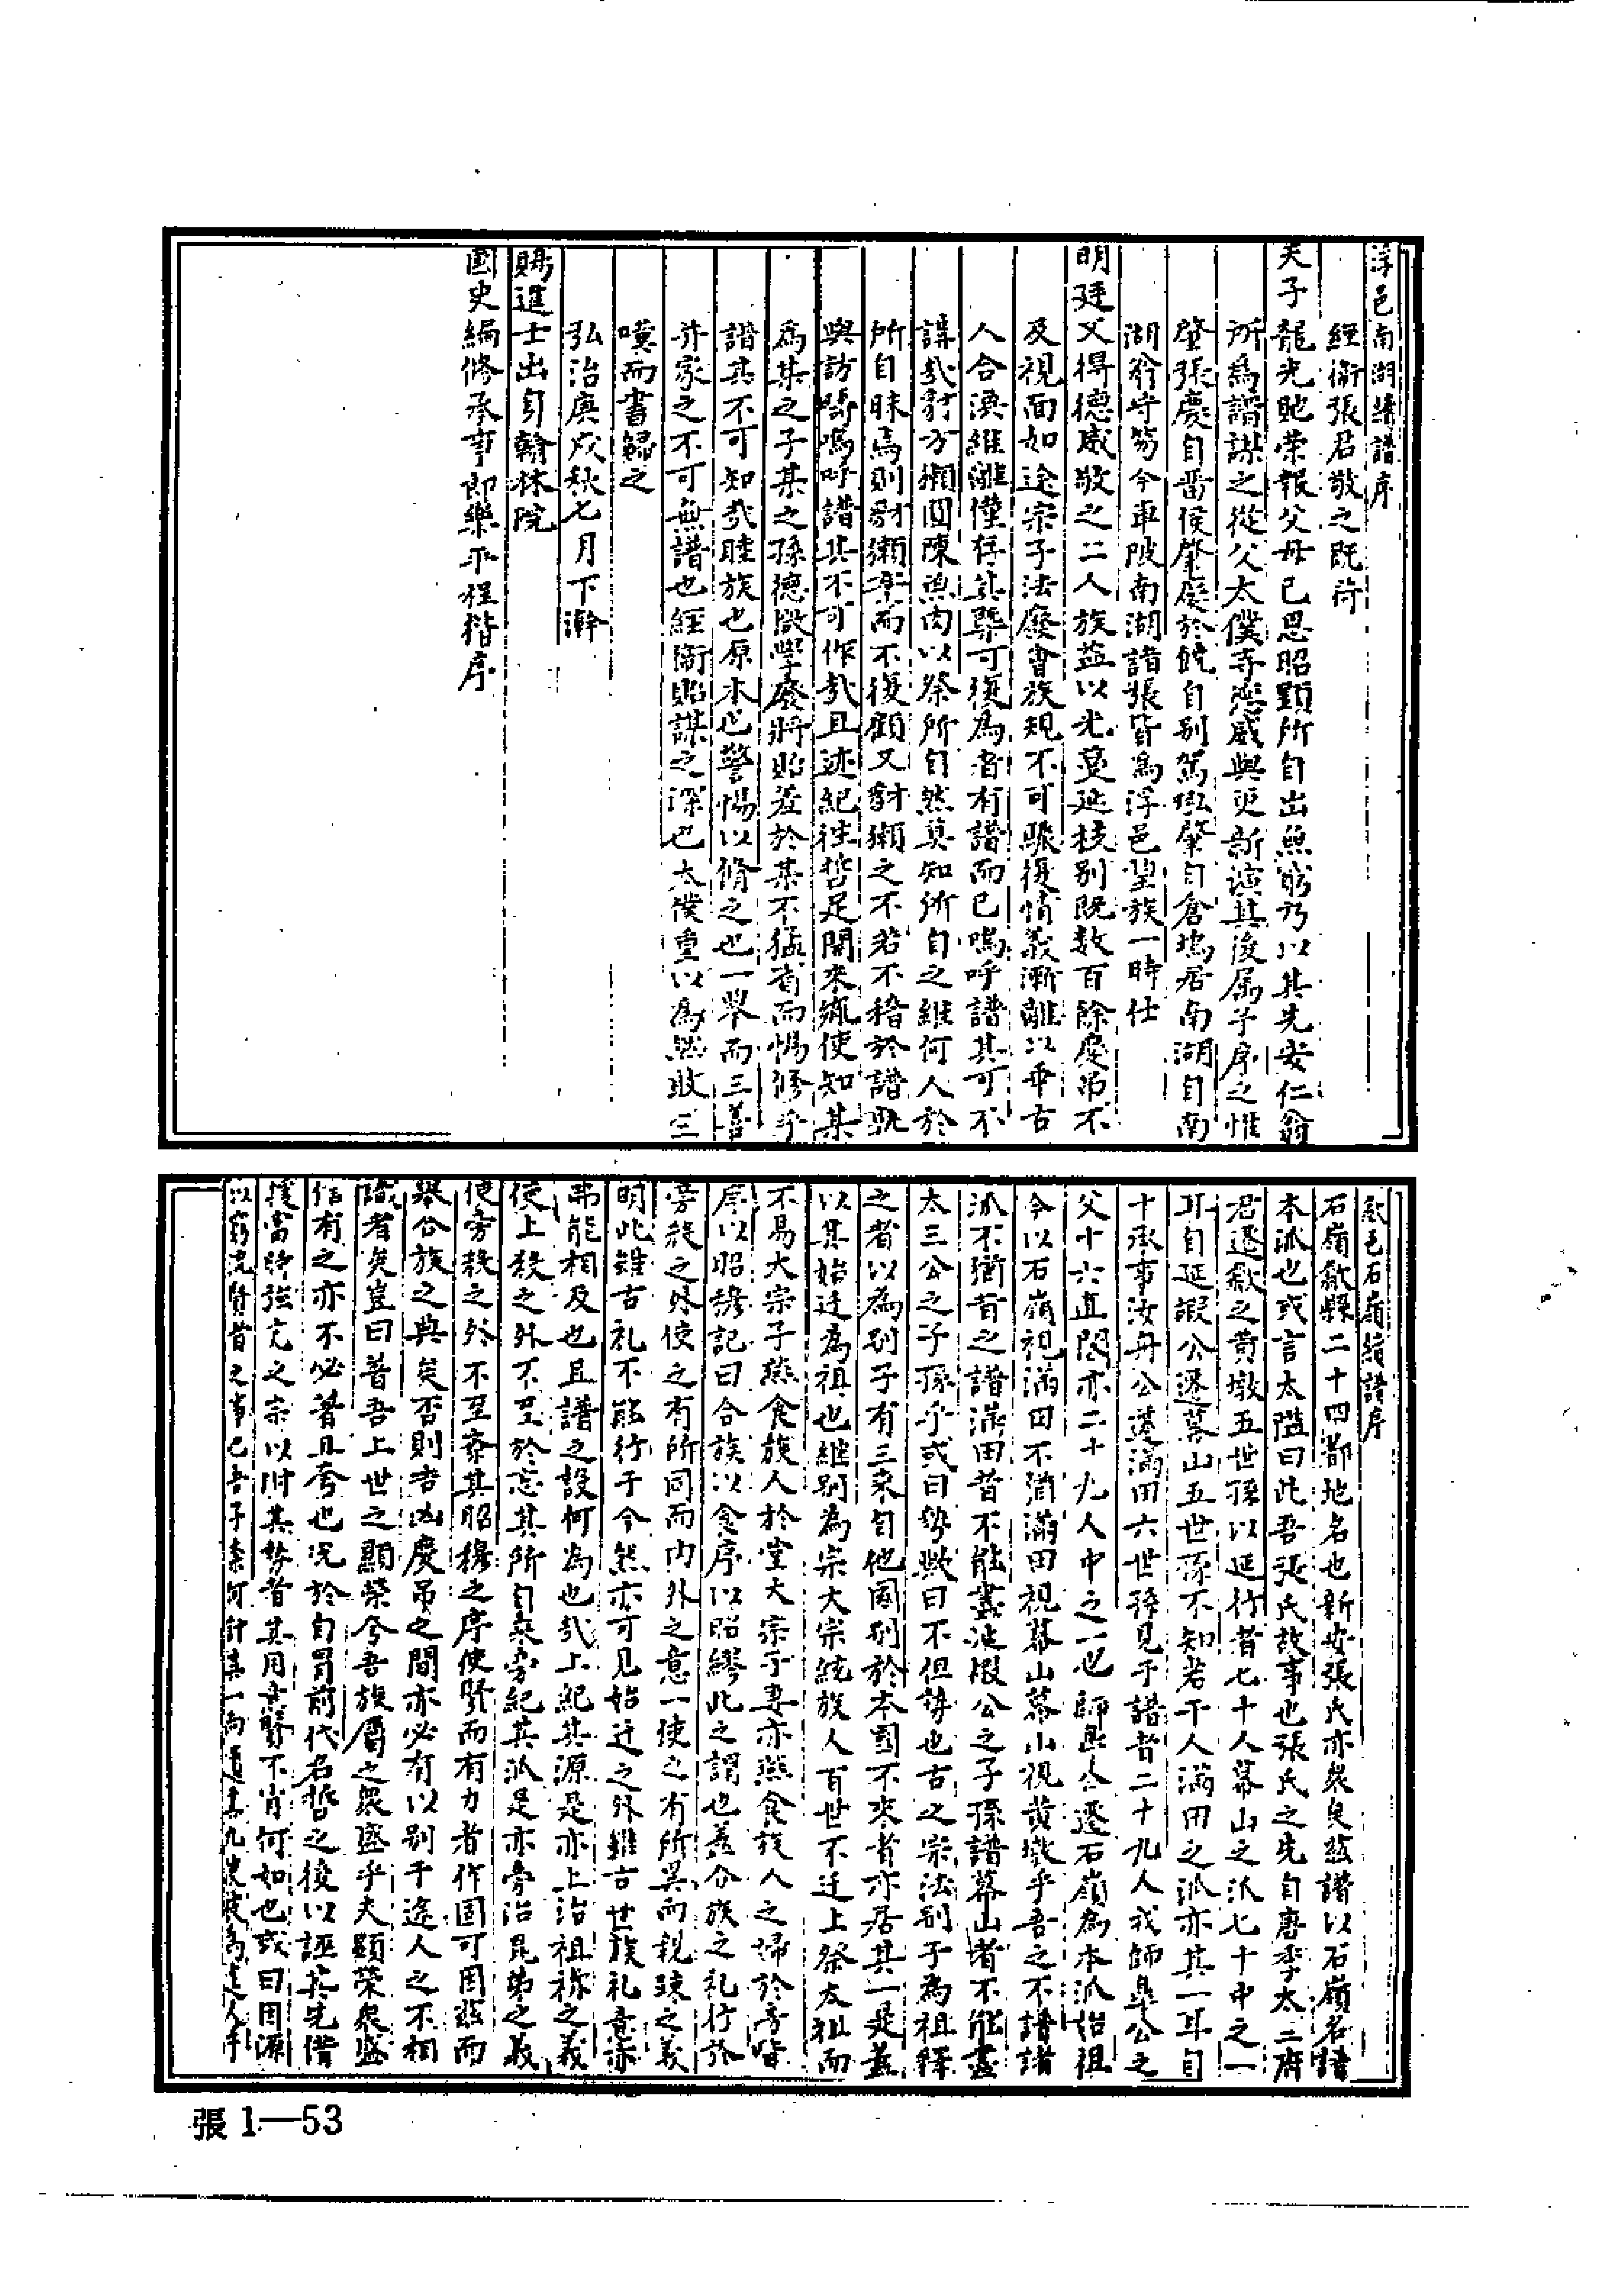 浮邑南湖續譜序
經衛張君敬之既荷
天子龍光貤荣報父母已思昭顯所自出無窮乃以其先安仁翁
所為譜謀之從父太僕寺丞德威與更新演其後属予序之惟
肇張慶自晋侯肇慶於自别駕肇自倉塢居南湖自南
湖翁守笏今車陂南湖諸張皆為浮邑望族一時仕
明廷又得德威敬之二人族益以光蔓延枝别既数百餘慶吊不
及視面如途宗子法廢會族規不可驟復情義漸離以乖古
人合渙維離僅存其槩可復為者有譜而已嗚呼譜其可不
講哉豺方獺圓陳魚肉以祭所自然莫知所自之維何人於
所自昧焉則豺獺率而不復顧又豺獺之不若不稽於譜孰
與訪嗚呼譜其不可作哉且述紀徃哲足開來冺使知某
為某之子某之孫德微學廢將貽羞於某不猛省而惕修乎
譜其不可知哉睦族也原本也警惕以脩之也一舉而三善
并家之不可無譜也經衛貽謀之深也太僕重以為然收三
嘆而書歸之
弘治庚戌秋七月下澣
賜進士出身翰林院
國史編修承事郎樂平程楷序
歙邑石嶺續譜序
石嶺歙縣二十四都地名也新安張氏亦衆矣兹譜以石嶺名譜
本派也或言太隘曰此吾張氏故事也張氏之先自唐李太二府
君遷歙之黄墩五世孫以延行者七十人幕山之派七十中之一
耳自延嘏公遷幕山五世孫不知若干人滿田之派亦其一耳自
十承事汝舟公遷滿田六世孫見于譜者二十九人我師臯公之
父十六直閣亦二十九人中之一也師臯公遷石嶺為本派始祖
今以石嶺視滿田不猶滿田視幕山幕山視黄墩乎吾之不譜諸
派不猶昔之譜滿田昔不能盡延嘏公之子孫譜幕山者不能盡
太三公之子孫乎或曰勢歟曰不但勢也古之宗法别子為祖釋
之者以為别子有三來自他國别於本國不來者亦居其一是盖
以其始迁為祖也継别為宗大宗統族人百世不迁上祭太祖而
不易大宗子燕食族人於堂大宗子妻亦燕食族人之婦於房皆
序以昭穆記曰合族以食序以昭繆此之謂也盖合族之礼行於
旁殺之外使之有所同而内外之意一使之有所異而親疎之义
明此雖古礼不能行于今然亦可見始迁之外雖古世族礼意亦
弗能相及也且譜之設何為也哉上紀其源是亦上治祖禰之義
使上殺之外不至於忘其所自來旁紀其派是亦旁治昆弟之義
使旁殺之外不至紊其昭穆之序使賢而有力者作固可因兹而
舉合族之典矣否則吉凶慶吊之間亦必有以别于途人之不相
識者矣豈曰普吾上世之顯荣今吾族屬之衆盛乎夫顯荣衆盛
信有之亦不必著且夸也况於自冒前代名哲之後以誣其先借
援富貴強宗以附其勢者其用意賢不肖何如也或曰因源
以竆流賢者之事也吾子奈何計其一而遺其九
張1—53